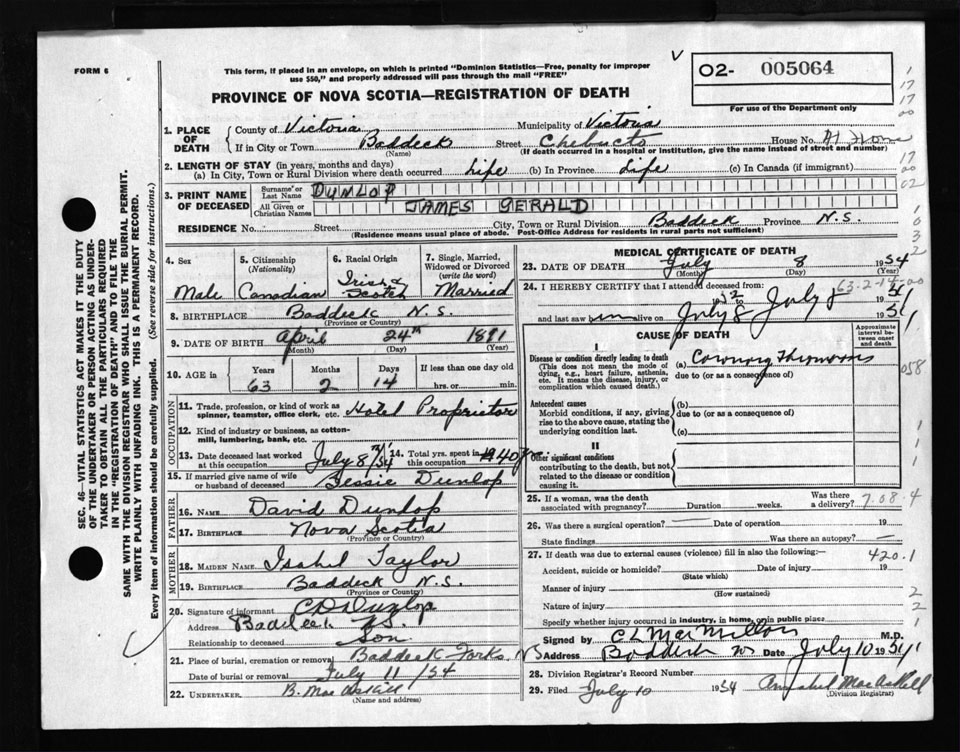 FORM 6
This form, if placed in an envelope, on which is printed "Dominion Statistics—Free, penalty for improper
use $50," and properly addressed will pass through the mail "FREE"
02- 005064
For use of the Department only
PROVINCE OF NOVA SCOTIA—REGISTRATION OF DEATH
1. PLACE OF DEATH
County of Victoria Municipality of Victoria
If in City or Town Baddeck Street Chebucto House No. At Home
(Name) (If death occurred in a hospital or institution, give the name instead of street and number)
2. LENGTH OF STAY (in years, months and days)
(a) In City, Town or Rural Division where death occurred Life (b) In Province Life (c) In Canada (if immigrant)
3. PRINT NAME OF DECEASED
Surname or Last Name DUNLOP
All Given or Christian Names JAMES GERALD
RESIDENCE No. Street City, Town or Rural Division Baddeck Province N.S.
(Residence means usual place of abode. Post-Office Address for residents in rural parts not sufficient)
4. Sex Male
5. Citizenship (Nationality) Canadian
6. Racial Origin Irish & Scotch
7. Single, Married, Widowed or Divorced (write the word) Married
8. BIRTHPLACE Baddeck N.S.
(Province or Country)
9. DATE OF BIRTH April 24th 1891
(Month) (Day) (Year)
10. AGE in Years Months Days If less than one day old
63 2 14 hrs. or min.
OCCUPATION
11. Trade, profession, or kind of work as spinner, teamster, office clerk, etc. Hotel Proprietor
12. Kind of industry or business, as cotton-mill, lumbering, bank, etc.
13. Date deceased last worked at this occupation July 8th/54
14. Total yrs. spent in this occupation 40 yrs.
15. If married give name of wife or husband of deceased Bessie Dunlop
FATHER
16. NAME David Dunlop
17. BIRTHPLACE Nova Scotia
(Province or Country)
MOTHER
18. MAIDEN NAME Isabel Taylor
19. BIRTHPLACE Baddeck N.S.
(Province or Country)
20. Signature of informant C D Dunlop
Address Baddeck N.S.
Relationship to deceased Son
21. Place of burial, cremation or removal Baddeck Forks NS
Date of burial or removal July 11/54
22. UNDERTAKER B. MacAskill
(Name and address)
MEDICAL CERTIFICATE OF DEATH
23. DATE OF DEATH July 8 1954
(Month) (Day) (Year)
24. I HEREBY CERTIFY that I attended deceased from:
1952 to July 8 1954
and last saw him alive on July 8 1954
CAUSE OF DEATH
Approximate interval between onset and death
I
Disease or condition directly leading to death
(This does not mean the mode of dying, e.g., heart failure, asthenia, etc. It means the disease, injury, or complication which caused death.)
(a) Coronary Thrombosis
due to (or as a consequence of)
Antecedent causes
Morbid conditions, if any, giving rise to the above cause, stating the underlying condition last.
(b)
due to (or as a consequence of)
(c)
II
Other significant conditions
contributing to the death, but not related to the disease or condition causing it.
25. If a woman, was the death associated with pregnancy? Duration weeks. Was there a delivery?
26. Was there a surgical operation? — Date of operation 19
State findings Was there an autopsy? —
27. If death was due to external causes (violence) fill in also the following:—
420.1
Accident, suicide or homicide? Date of injury 19
(State which)
Manner of injury
(How sustained)
Nature of injury
Specify whether injury occurred in industry, in home, or in public place
Signed by C L MacMillan M.D.
Address Baddeck NS Date July 10 1954
28. Division Registrar's Record Number
29. Filed July 10 1954 Annabel MacAskill
(Division Registrar)
SEC. 46—VITAL STATISTICS ACT MAKES IT THE DUTY
OF THE UNDERTAKER OR PERSON ACTING AS UNDER-
TAKER TO OBTAIN ALL THE PARTICULARS REQUIRED
IN THE "REGISTRATION OF DEATH" AND TO FILE THE
SAME WITH THE DIVISION REGISTRAR WHO SHALL ISSUE THE BURIAL PERMIT.
WRITE PLAINLY WITH UNFADING INK. THIS IS A PERMANENT RECORD.
Every item of information should be carefully supplied. (See reverse side for instructions.)